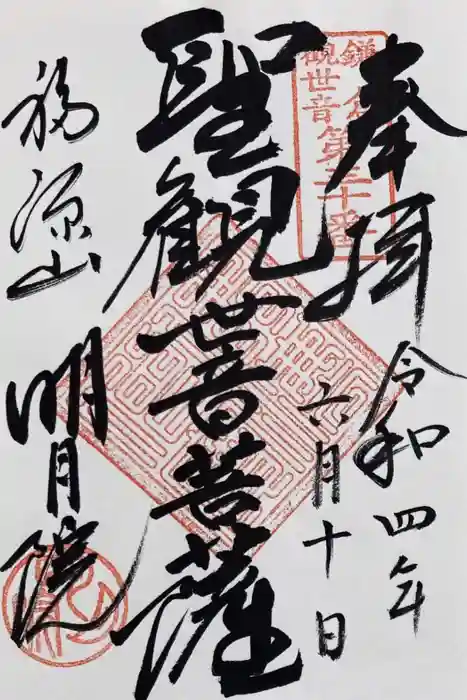 奉拝
令和四年
六月十日
鎌倉
観世音
第三十番
聖観世音菩薩
福源山
明月院